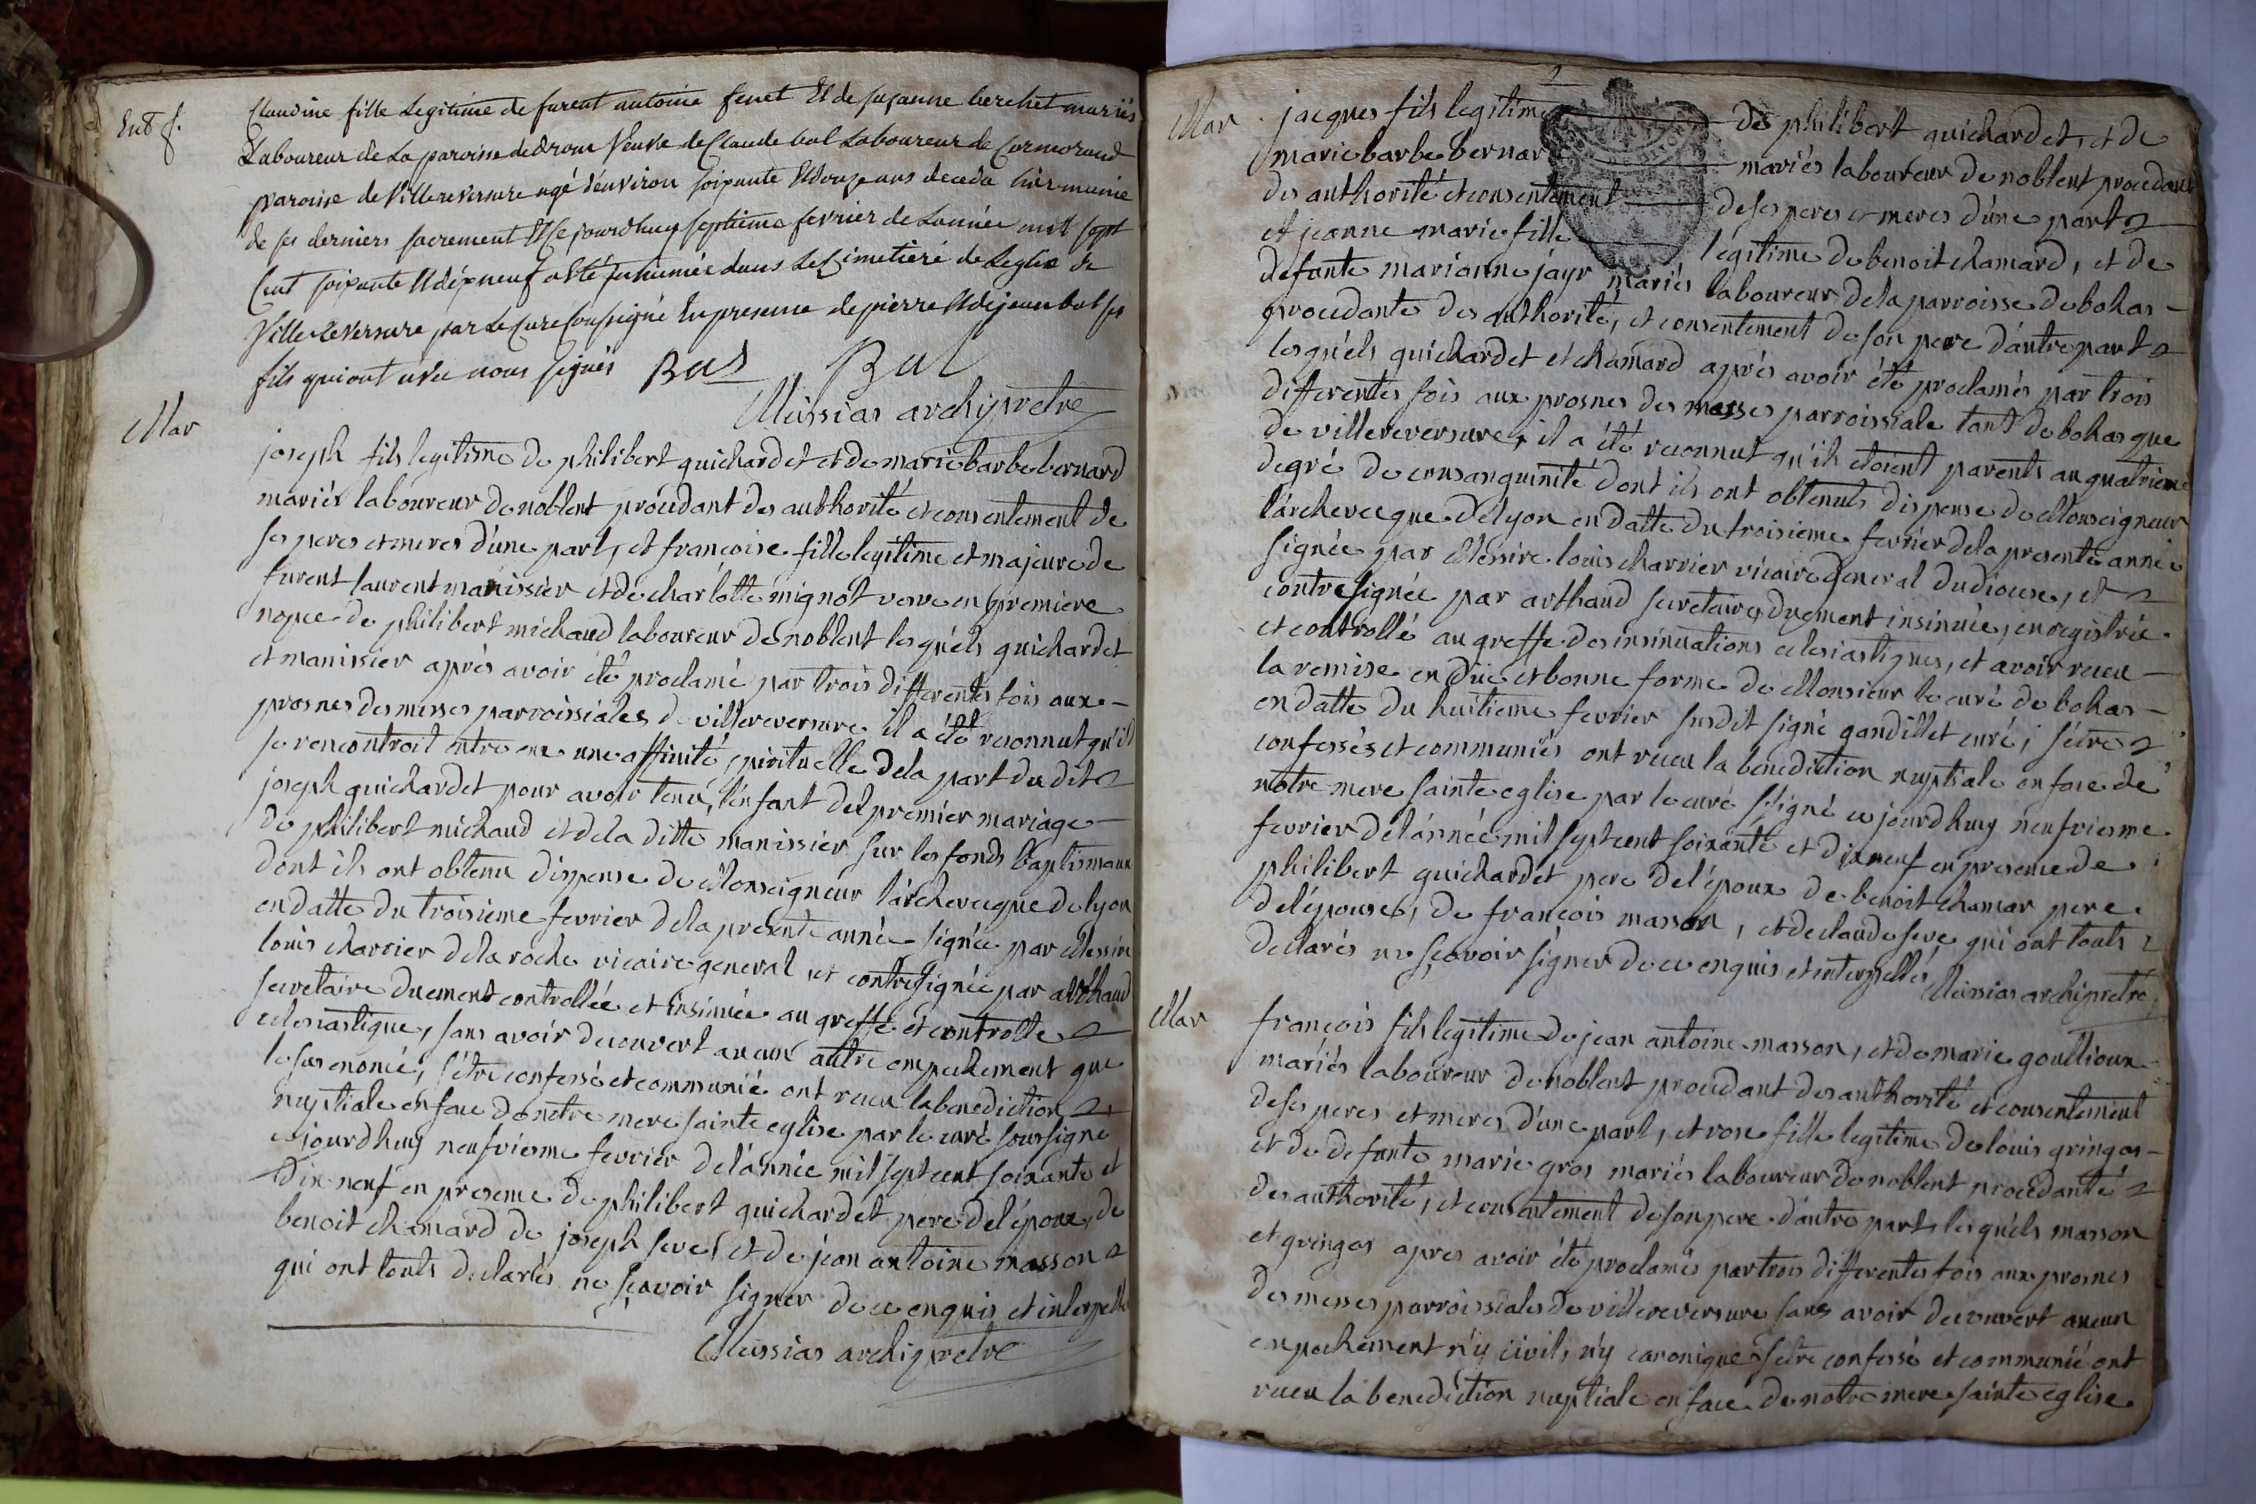 Ent f.
Claudine fille Legitime de furent antoine fenet Et de suzanne berchet mariés
Laboureur de La paroisse de drom Veuve de Claude bal Laboureur de Cormorand
paroisse de Villereversure agé d'environ soixante Et douze ans deceda hier munie
de ses derniers sacrement Et Ce jourdhuy septieme fevrier de Lannée mil sept
Cent soixante Et dixneuf a Eté inhumée dans Le Cimetiere de Leglise de
Villereversure par Le Cure soussigné En presence de pierre Et de jean bal ses
fils qui ont avec nous signés Bal Bal
Messias archipretre
Mar
joseph fils legitime de philibert guichardet et de marie barbe bernard
mariés laboureur de noblent procedant des authorité et consentement de
ses peres et meres d'une part, et françoise fille legitime et majeure de
furent laurent manissier et de charlotte mignot veuve en premiere
nopce de philibert michaud laboureur de noblent lesquels guichardet
et manissier aprés avoir été proclamé par trois differentes fois aux
prosnes des messes parroissiales de villereversure il a été reconnut qu'il
se rencontroit entre eux une affinité spirituelle de la part du dit
joseph guichardet pour avoir tenu l'enfant del premier mariage
de philibert michaud et de la ditte manissier sur les fonds baptismaux
dont ils ont obtenu dispense de Monseigneur l'archevecque de lyon
en datte du troisieme fevrier de la presente année signée par Messire
louis charrier de la roche vicaire general et contresignée par arthaud
secretaire duement controllée et insinuée au greffe et controlle
eclesiastique, sans avoir decouvert aucun autre empechement que
le sus enoncé, s'étre confessé et communié ont receu la benediction
nuptiale en face de notre mere sainte eglise par le curé soussigné
cejourdhuy neufviesme fevrier de l'année mil sept cent soixante et
dix-neuf en presence de philibert guichardet pere de l'époux, de
benoit chamard de joseph seve, et de jean antoine masson
qui ont touts declarés ne sçavoir signer de ce enquis et interpellé
Messias archipretre
2
Mar
jacques fils legitime de philibert guichardet, et de
marie barbe bernard mariés laboureur de noblent procedant
des authorité et consentement de ses peres et meres d'une part
et jeanne marie fille legitime de benoit chamard, et de
defante marianne jayr mariés laboureur de la parroisse de bohas
procedante des authorité, et consentement de son pere d'autre part
lesquels guichardet et chamard aprés avoir été proclamés par trois
differentes fois aux prosnes des messes parroissiale tant de bohas que
de villereversure, il a été reconnut qu'ils etoient parents au quatrieme
degré de consanguinité dont ils ont obtenuts dispense de Monseigneur
l'archevecque de lyon en datte du troisieme fevrier de la presente année
signée par Messire louis charrier vicaire general du diocese, et
contresignée par arthaud secretaire, duement insinuée, enregistrée
et controllé au greffe des insinuations eclesiastiques, et avoir receu
la remise en düe et bonne forme de Monsieur le curé de bohas
en datte du huitieme fevrier susdit signé gandillet curé; s'étre
confessés et communiés ont receu la benediction nuptiale en face de
notre mere sainte eglise par le curé ssigné ce jourdhuy neufviesme
fevrier de l'année mil sept cent soixante et dixneuf en presence de
philibert guichardet pere de l'époux de benoit chamar pere
de l'épouse, de françois masson, et de claude seve qui ont touts
declarés ne sçavoir signer de ce enquis et interpellés
Messias archiprétre
Mar
françois fils legitime de jean antoine masson, et de marie goullioux
mariés laboureur de noblent procedant des authorité et consentement
de ses peres et meres d'une part, et rose fille legitime de louis gringos
et de defante marie gros mariés laboureur de noblent procedante
des authorité, et consentement de son pere d'autre part, lesquels masson
et gringos apres avoir été proclamés par trois differentes fois aux prosnes
des messes parroissiales de villereversure sans avoir decouvert aucun
empechement n'y civil, n'y canonique s'étre confessé et communié ont
receu la benediction nuptiale en face de notre mere sainte eglise